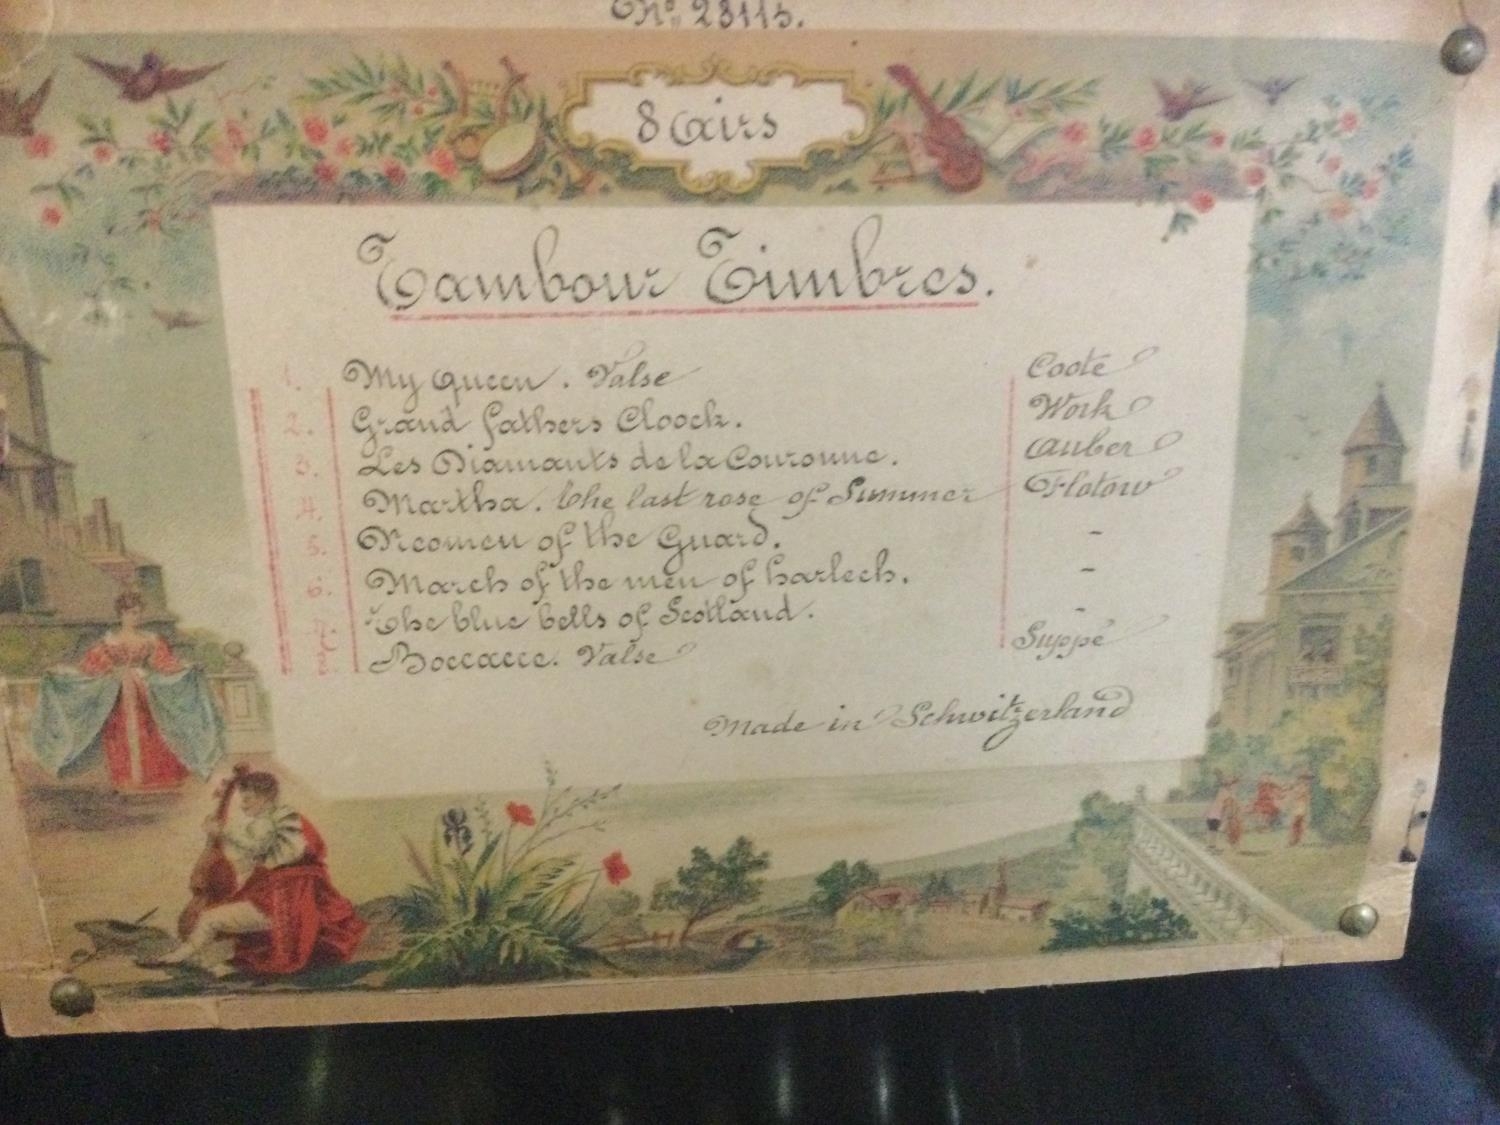 No. 28115.
8 airs
Tambour Timbres.
1. My queen. Valse Coote
2. Grand fathers Cloock. Work
3. Les Diamants de la Couronne. Auber
4. Martha. The last rose of Summer Flotow
5. Neomen of the Guard. -
6. March of the men of harlech. -
7. The blue bells of Scotland. -
8. Boccacce. Valse Suppé
Made in Schwitzerland